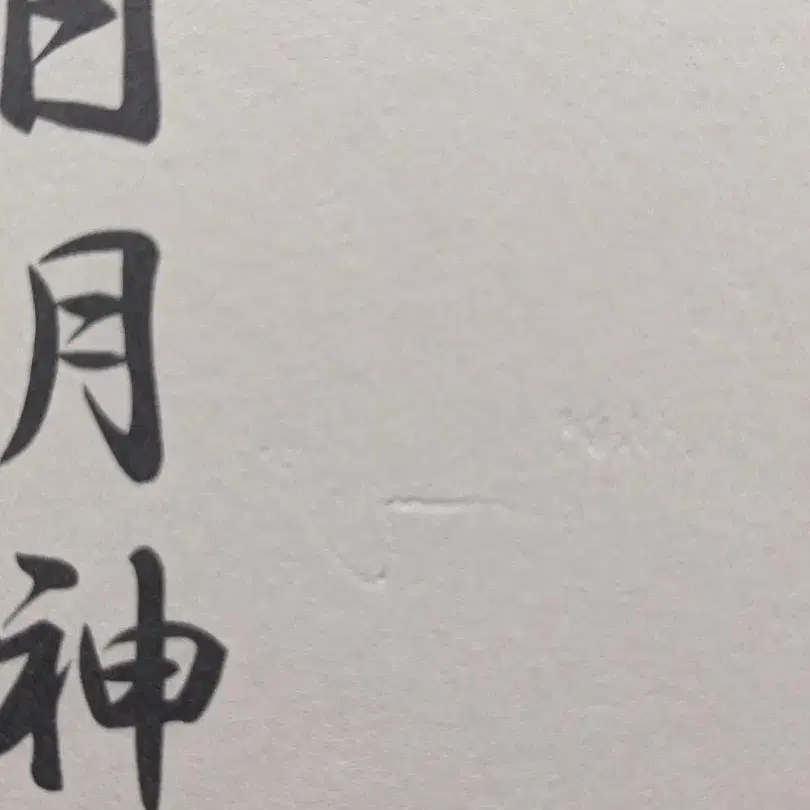 日月神